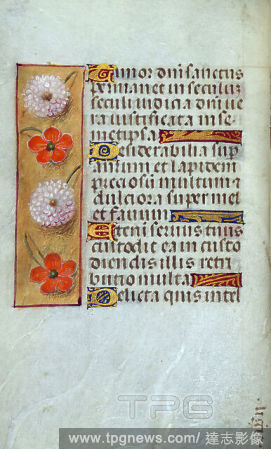 Timor dni sanctus
permanet in seculū
seculi iudicia dni ue
ra iustificata in se
metipsa
Desiderabilia sup
aurum et lapidem
preciosū multum
dulciora super mel
et fauum
Etenim seruus tuus
custodit ea in custo
diendis illis retri
butio multa
Delicta quis intel
TPG
www.tpgnews.com/達志影像